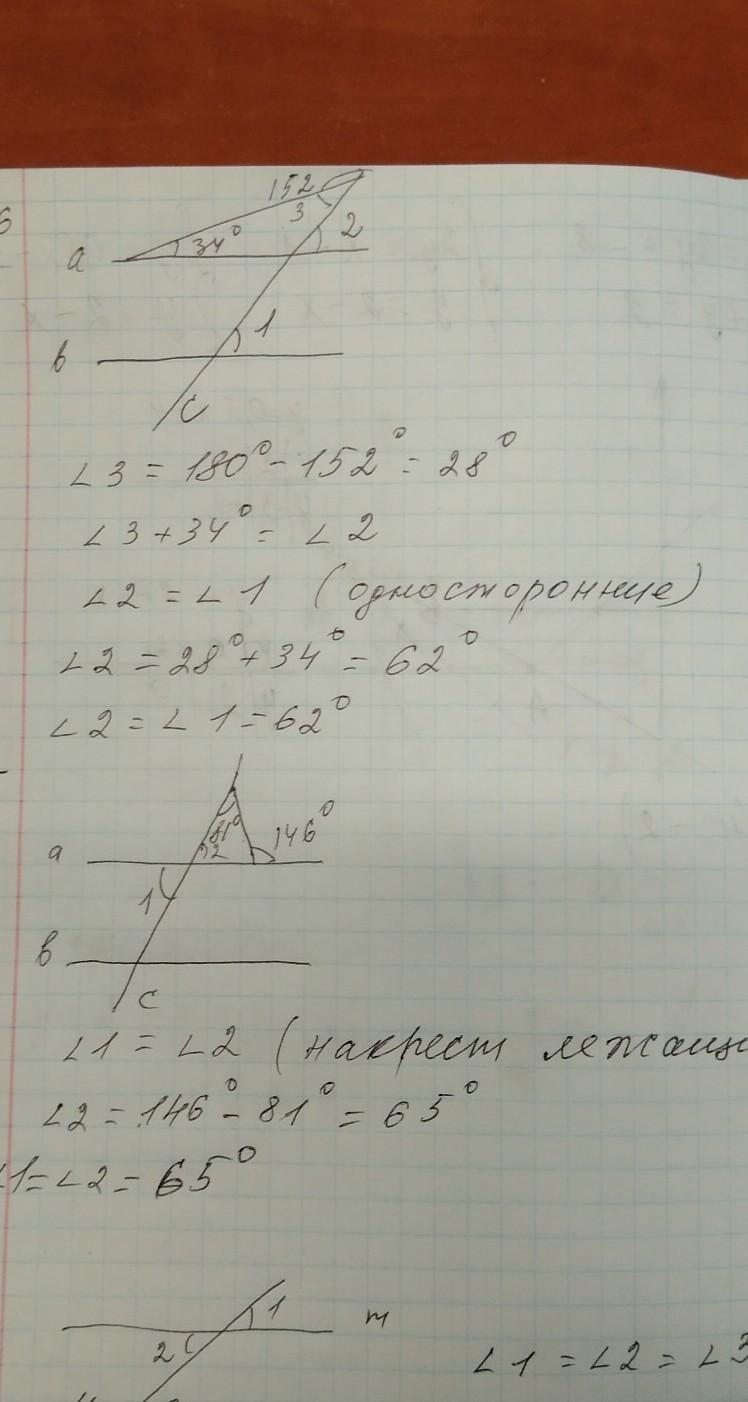 152
3
2
34°
a
1
b
c
∠3 = 180° - 152° = 28°
∠3 + 34° = ∠2
∠2 = ∠1 (односторонние)
∠2 = 28° + 34° = 62°
∠2 = ∠1 = 62°
81°
146°
a
2
1
b
c
∠1 = ∠2 (накрест лежащи
∠2 = 146° - 81° = 65°
∠1 = ∠2 = 65°
1
m
2
∠1 = ∠2 = ∠3